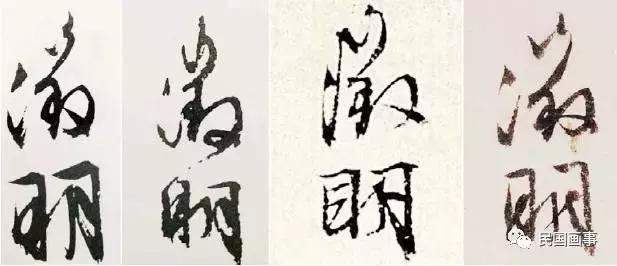 徵明
徵明
徵明
徵明
民国画事